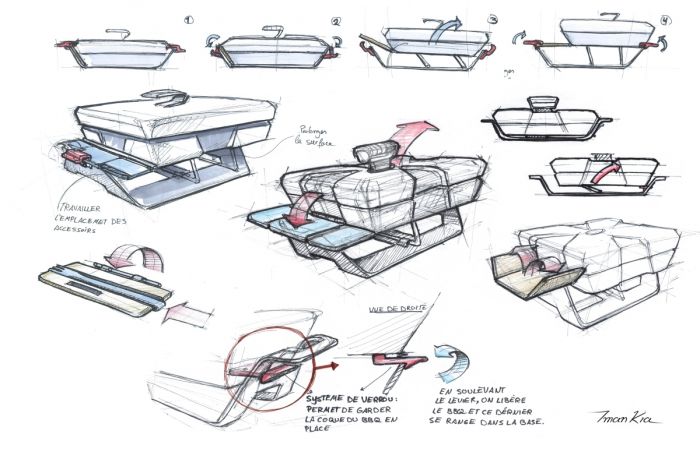 1
2
3
4
Prolonger
la surface
TRAVAILLER
L'EMPLACEMET DES
ACCESSOIRS
VUE DE DROITE
SYSTEME DE VERROU :
PERMET DE GARDER
LA COQUE DU BBQ EN
PLACE
EN SOULEVANT
LE LEVIER, ON LIBÈRE
LE BBQ ET CE DÉRNIER
SE RANGE DANS LA BASE.
Iman Kia